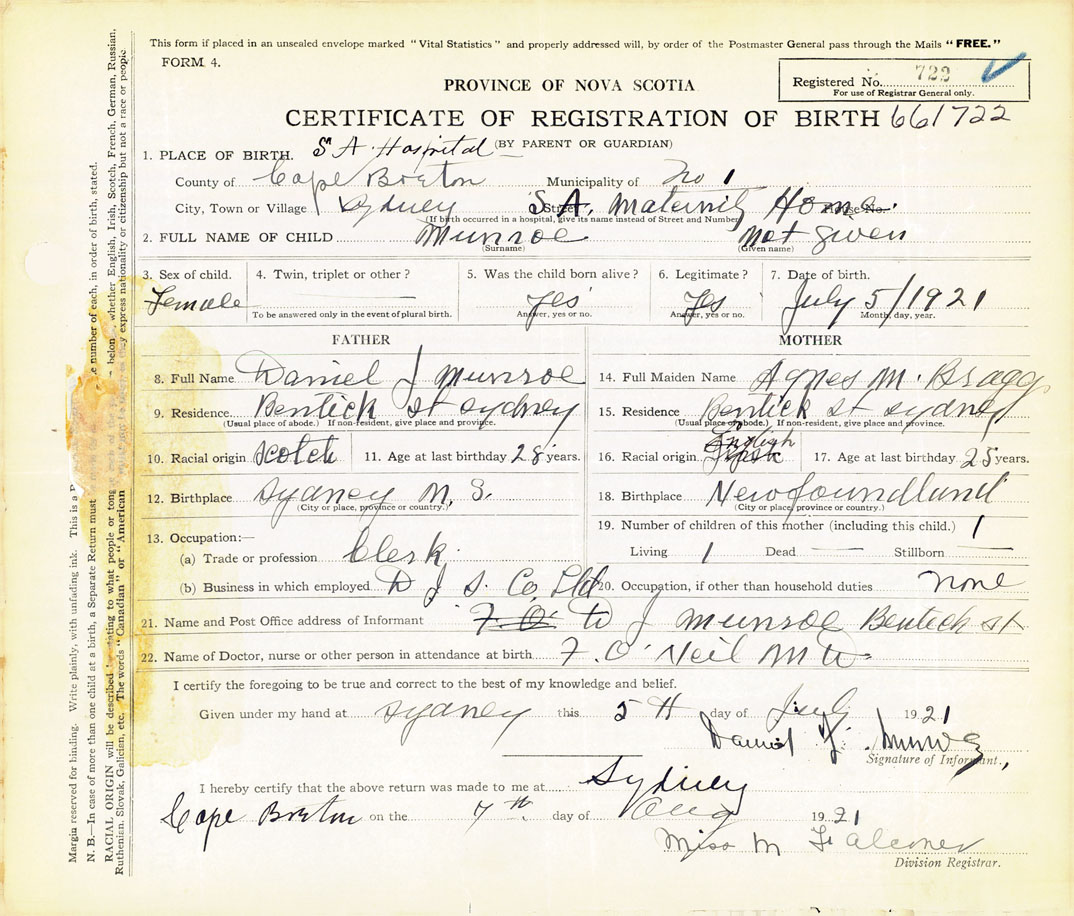 This form if placed in an unsealed envelope marked "Vital Statistics" and properly addressed will, by order of the Postmaster General pass through the Mails "FREE."
FORM 4.
Registered No. 722
For use of Registrar General only.
PROVINCE OF NOVA SCOTIA
CERTIFICATE OF REGISTRATION OF BIRTH 661722
(BY PARENT OR GUARDIAN)
1. PLACE OF BIRTH. S A Hospital
County of Cape Breton Municipality of No 1
City, Town or Village Sydney Street S A. Maternity Home House No.
(If birth occurred in a hospital, give its name instead of Street and Number)
2. FULL NAME OF CHILD Munroe not given
(Surname) (Given name)
3. Sex of child. 4. Twin, triplet or other? 5. Was the child born alive? 6. Legitimate? 7. Date of birth.
Female Yes Yes July 5/1921
To be answered only in the event of plural birth. Answer, yes or no. Answer, yes or no. Month, day, year.
FATHER MOTHER
8. Full Name Daniel J Munroe 14. Full Maiden Name Agnes M. Bragg
9. Residence Bentick st sydney 15. Residence Bentick st sydney
(Usual place of abode.) If non-resident, give place and province. (Usual place of abode.) If non-resident, give place and province.
10. Racial origin Scotch 11. Age at last birthday 28 years. 16. Racial origin English 17. Age at last birthday 25 years.
12. Birthplace Sydney N. S. 18. Birthplace Newfoundland
(City or place, province or country.) (City or place, province or country.)
13. Occupation:— 19. Number of children of this mother (including this child.) 1
(a) Trade or profession Clerk Living 1 Dead — Stillborn —
(b) Business in which employed D J S. Co. Ltd 20. Occupation, if other than household duties none
21. Name and Post Office address of Informant F. O. D J Munroe Bentick st
22. Name of Doctor, nurse or other person in attendance at birth F. O'Neil M D
I certify the foregoing to be true and correct to the best of my knowledge and belief.
Given under my hand at Sydney this 5th day of July 1921
Daniel J. Munroe
Signature of Informant.
I hereby certify that the above return was made to me at Sydney
Cape Breton on the 7th day of Aug 1921
Miss M Falconer
Division Registrar.
Margin reserved for binding. Write plainly, with unfading ink. This is a P
N. B.—In case of more than one child at a birth, a Separate Return must number of each, in order of birth, stated.
RACIAL ORIGIN will be described to what people or tongue belong, whether English, Irish, Scotch, French, German, Russian,
Ruthenian, Slovak, Galician, etc. The words "Canadian" or "American express nationality or citizenship but not a race or people